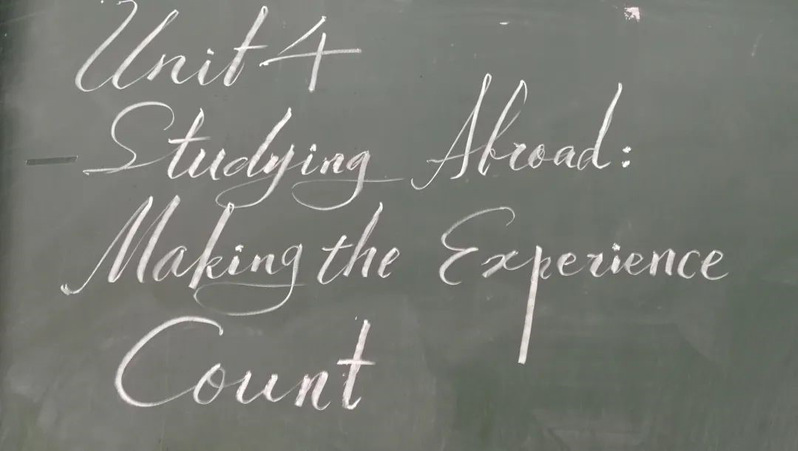 Unit 4
Studying Abroad:
Making the Experience
Count